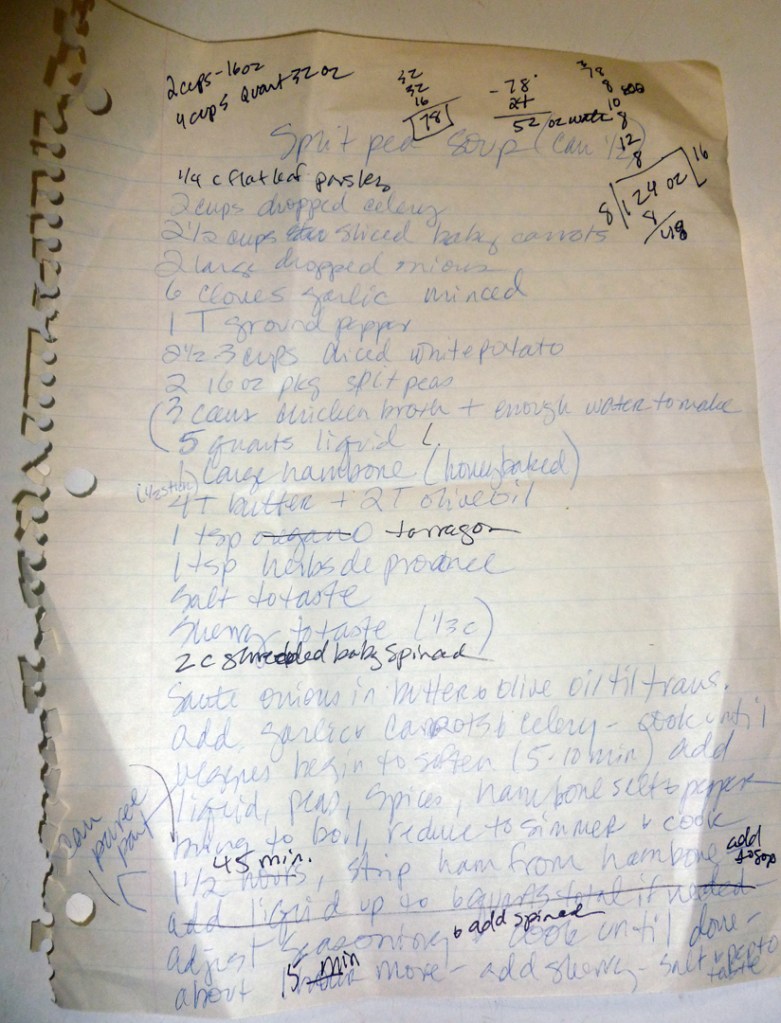 2 cups - 16 oz
4 cups Quart 32 oz
32
32
16
78
- 78
24
52 oz water
78
8
10
8
12
8
8 124 oz 16
8
48
Split pea Soup (Can 1/2)
1/4 c flat leaf parsley
2 cups chopped celery
2 1/2 cups sliced baby carrots
2 large chopped onions
6 cloves garlic minced
1 T ground pepper
2 1/2 - 3 cups diced white potato
2 16 oz pkg split peas
(3 cans chicken broth + enough water to make
5 quarts liquid
1 large hambone (honeybaked)
(1/2 stick) 4 T butter + 2 T olive oil
1 tsp oregano tarragon
1 tsp herbs de provence
Salt to taste
Sherry to taste (1/3 c)
2 c shredded baby Spinach
Saute onions in butter & olive oil til trans.
add garlic & carrots & celery - cook until
veggies begin to soften (5-10 min) add
liquid, peas, spices, hambone salt & pepper
bring to boil, reduce to simmer & cook
can puree part
45 min.
1 1/2 hours, strip ham from hambone add to soup
add liquid up to 6 quarts total if needed
adjust seasoning & add spinach cook until done -
about 15 min hour more - add sherry - salt & pep to taste